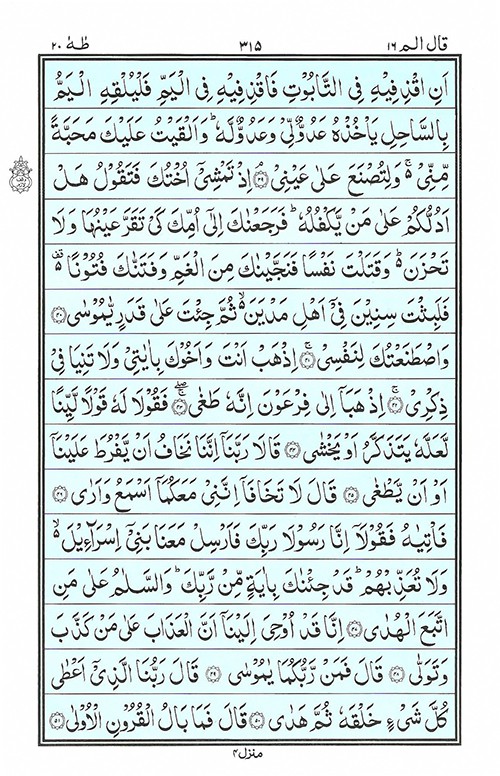 قال الم ١٦ ٣١٥ طٰهٰ ٢٠
اَنِ اقْذِفِيْهِ فِى التَّابُوْتِ فَاقْذِفِيْهِ فِى الْيَمِّ فَلْيُلْقِهِ الْيَمُّ
بِالسَّاحِلِ يَاْخُذْهُ عَدُوٌّ لِّىْ وَعَدُوٌّ لَّهٗ ؕ وَاَلْقَيْتُ عَلَيْكَ مَحَبَّةً
مِّنِّىْ ۚ وَلِتُصْنَعَ عَلٰى عَيْنِىْ ۘ ﴿٣٩﴾ اِذْ تَمْشِىْۤ اُخْتُكَ فَتَقُوْلُ هَلْ
اَدُلُّكُمْ عَلٰى مَنْ يَّكْفُلُهٗ ؕ فَرَجَعْنٰكَ اِلٰٓى اُمِّكَ كَىْ تَقَرَّ عَيْنُهَا وَلَا
تَحْزَنَ ؕ وَقَتَلْتَ نَفْسًا فَنَجَّيْنٰكَ مِنَ الْغَمِّ وَفَتَنّٰكَ فُتُوْنًا
فَلَبِثْتَ سِنِيْنَ فِىْۤ اَهْلِ مَدْيَنَ ۙ ثُمَّ جِئْتَ عَلٰى قَدَرٍ يّٰمُوْسٰى ﴿٤٠﴾
وَاصْطَنَعْتُكَ لِنَفْسِىْ ۚ ﴿٤١﴾ اِذْهَبْ اَنْتَ وَاَخُوْكَ بِاٰيٰتِىْ وَلَا تَنِيَا فِىْ
ذِكْرِىْ ۚ ﴿٤٢﴾ اِذْهَبَاۤ اِلٰى فِرْعَوْنَ اِنَّهٗ طَغٰى ۖۚ ﴿٤٣﴾ فَقُوْلَا لَهٗ قَوْلًا لَّيِّنًا
لَّعَلَّهٗ يَتَذَكَّرُ اَوْ يَخْشٰى ﴿٤٤﴾ قَالَا رَبَّنَاۤ اِنَّنَا نَخَافُ اَنْ يَّفْرُطَ عَلَيْنَاۤ
اَوْ اَنْ يَّطْغٰى ﴿٤٥﴾ قَالَ لَا تَخَافَاۤ اِنَّنِىْ مَعَكُمَاۤ اَسْمَعُ وَاَرٰى ﴿٤٦﴾
فَاْتِيٰهُ فَقُوْلَاۤ اِنَّا رَسُوْلَا رَبِّكَ فَاَرْسِلْ مَعَنَا بَنِىْۤ اِسْرَآءِيْلَ ۙ
وَلَا تُعَذِّبْهُمْ ؕ قَدْ جِئْنٰكَ بِاٰيَةٍ مِّنْ رَّبِّكَ ؕ وَالسَّلٰمُ عَلٰى مَنِ
اتَّبَعَ الْهُدٰى ﴿٤٧﴾ اِنَّا قَدْ اُوْحِىَ اِلَيْنَاۤ اَنَّ الْعَذَابَ عَلٰى مَنْ كَذَّبَ
وَتَوَلّٰى ﴿٤٨﴾ قَالَ فَمَنْ رَّبُّكُمَا يٰمُوْسٰى ﴿٤٩﴾ قَالَ رَبُّنَا الَّذِىْۤ اَعْطٰى
كُلَّ شَىْءٍ خَلْقَهٗ ثُمَّ هَدٰى ﴿٥٠﴾ قَالَ فَمَا بَالُ الْقُرُوْنِ الْاُوْلٰى ﴿٥١﴾
منزل ٤